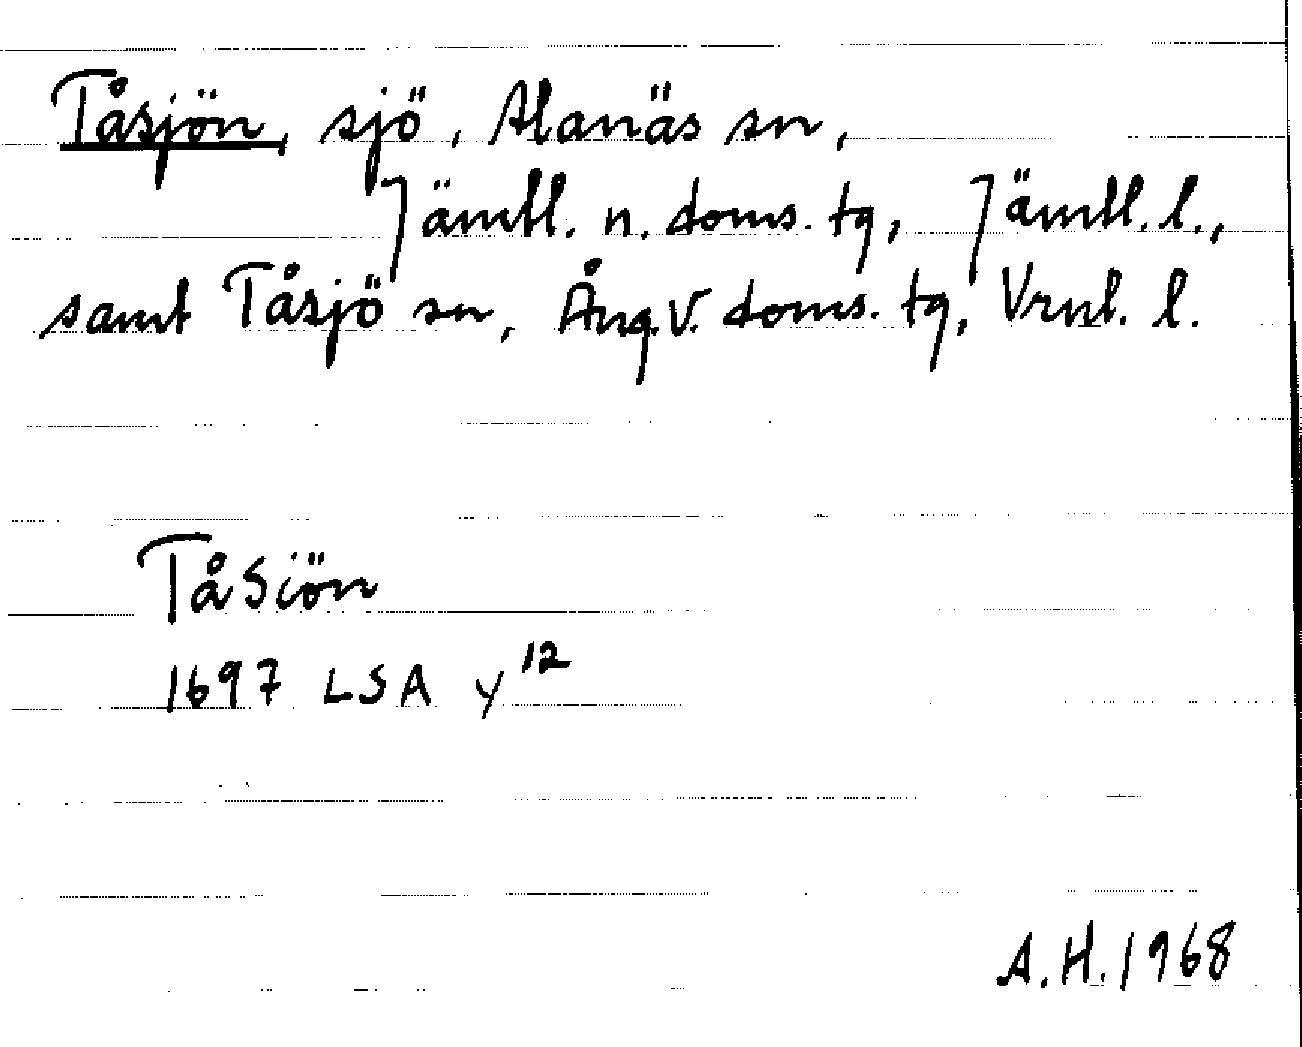 Tåsjön, sjö, Alanäs sn,
Jämtl. n. doms. tg, Jämtl. l.,
samt Tåsjö sn, Ång. v. doms. tg, Vrnl. l.
TåSiön
1697 LSA y 12
A.H. 1968